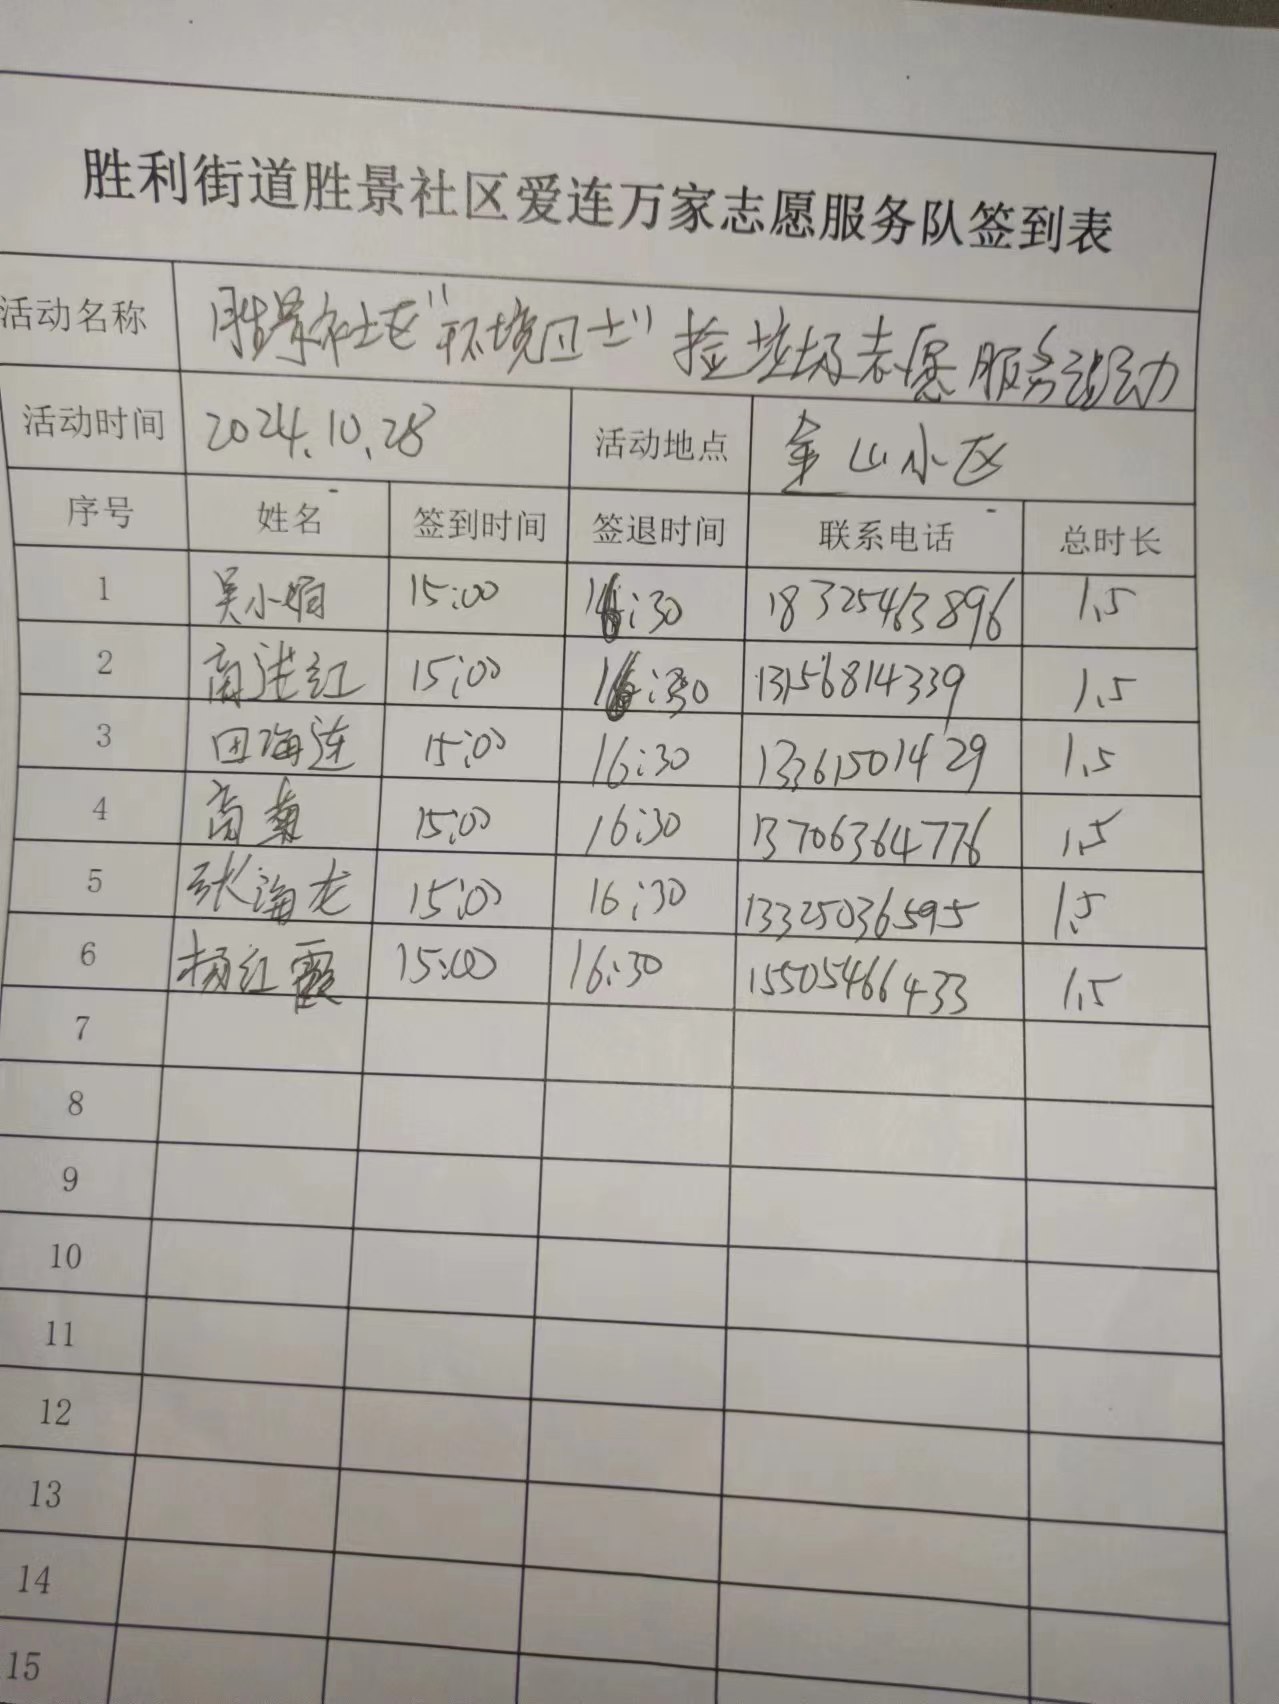 胜利街道胜景社区爱连万家志愿服务队签到表
活动名称 胜景社区“环境卫士”捡垃圾志愿服务活动
活动时间 2024.10.28 活动地点 金山小区
序号 姓名 签到时间 签退时间 联系电话 总时长
1 吴小娟 15:00 16:30 18325463896 1.5
2 高洪红 15:00 16:30 13156814339 1.5
3 田海连 15:00 16:30 13361501429 1.5
4 高菊 15:00 16:30 13706364776 1.5
5 张海龙 15:00 16:30 13325036595 1.5
6 杨红霞 15:00 16:30 15505466433 1.5
7
8
9
10
11
12
13
14
15